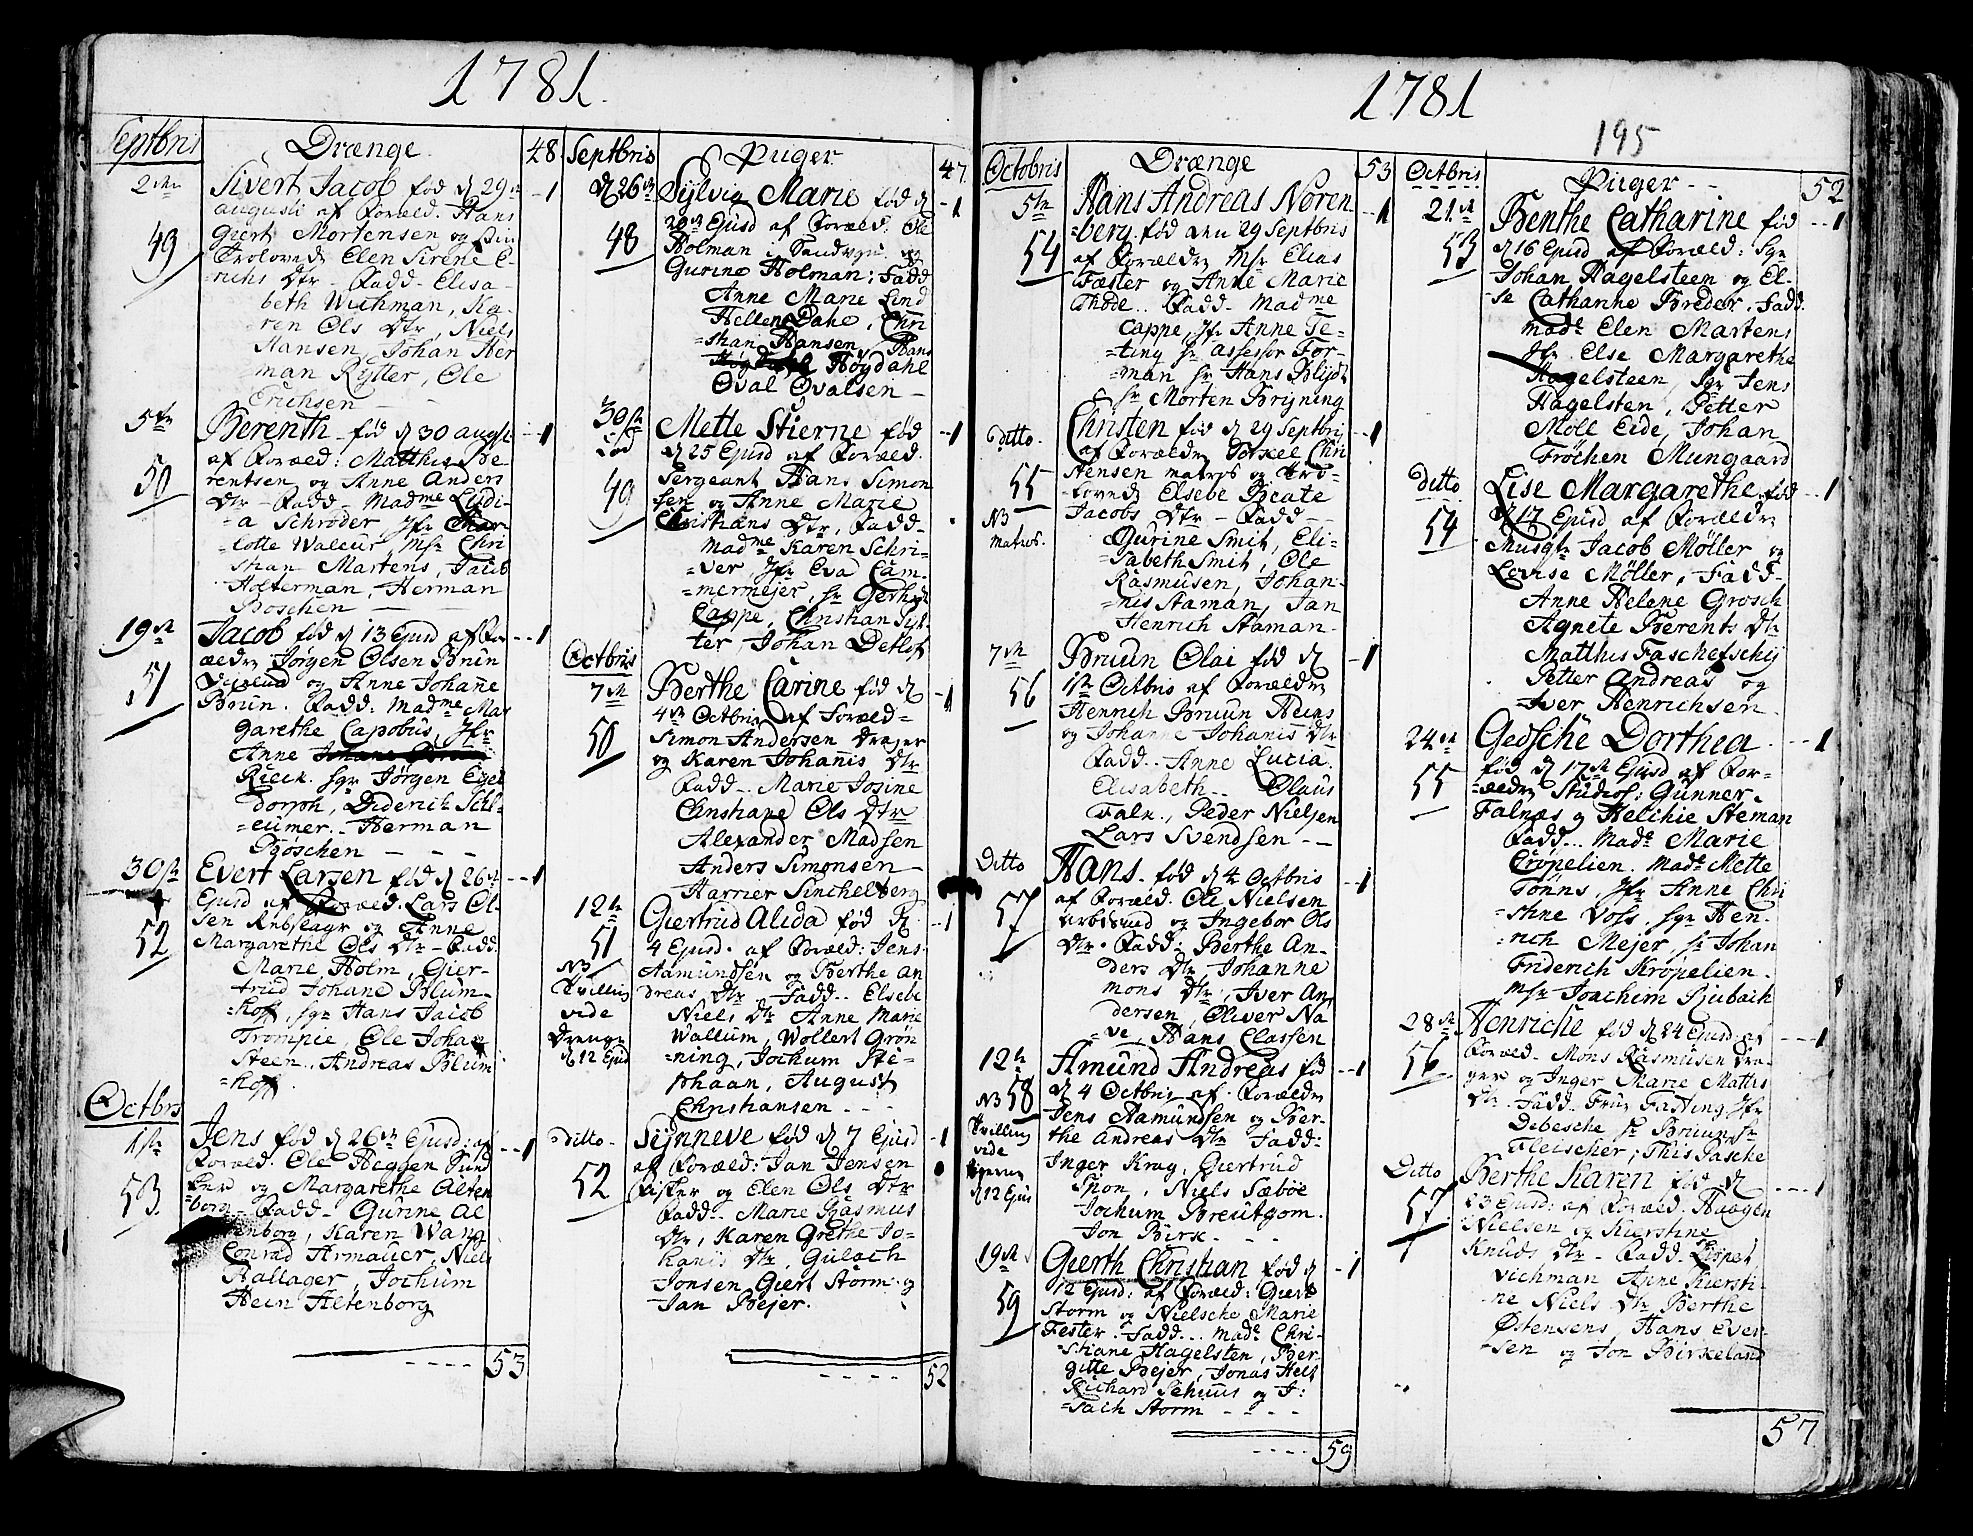 1781.
Septbris
Drænge.
48.
2den
Sivert Jacob fød d 29de
1
augusti af Foræld. Hans
49
Giert Mortensen og
Trolovede Elen Sirene E-
=richs Dtr - Fadd - Elisa-
beth Wichman, Ka-
ren Ols Dtr, Niels
Hansen, Johan Her
man Rytter, Ole
Erichsen
5te
Berenth fød d 30 augst
1
af Foræld: Matthis Be
50
rentsen og Anne Anders
Dtr - Fadd - Madme Lydi-
=a Schrøder, Jfr Char
lotte Waleur, Msr Chri
stian Martens, Jacob
Holterman, Herman
Boschen
19de
Jacob fød d 13 Ejusd af For
1
ældre Jørgen Olsen Brun
51
og Anne Johanne
Brun. Fadd: Madme Mar
garethe Capobus, Jfr
Anne
Rieck. Sgr Jørgen Egel
dorph, Diderich Schl-
=eumer.. Herman
Bøschen
30te
Evert Larsen fød d 26de
1
Ejusd af Foræld. Lars Ol-
52
sen Rebslagr og Anne
Margarethe Ols Dtr - Fadd.
Marie Holm, Gier-
trud Johane Blum-
=hoff, Sgr Hans Jacob
Trompie, Ole Johan
Steen, Andreas Blum
=hoff
Octbris
1ste
Jens fød d 26de Ejusd: af
1
Foræld. Ole Heggen
53
og Margarethe Alten
=borg - Fadd - Gurine Al
tenborg, Karen Wang
Conrad Armauer, Niels
Hallager, Jochum
Hein Altenborg
53
Septbris
Piger
47
d 26de
Sylvig Marie fød d
1
20de Ejusd af Foræld. Ole
48
Holman i Sandvigen og
Gurine Holman: Fadd
Anne Marie Lind
Hellen Dahe, Chri
=stian Hansen, Hans
Høydahl
Oval Ovalsen -
30te
Mette Stierne fød
1
d 25 Ejusd af Foræld.
49
Sergeant Hans Simon
sen og Anne Marie
Christians Dtr, Fadd-
Madme Karen Schri-
=ver, Jfr Eva Cam-
=mermejer, Sr Gerhardt
Cappe, Christian
ter Johan Detlef
Octbris
7de
Berthe Carine fød d
1
4de Octbris af Foræld=
50
Simon Andersen Drejer
og Karen Johanis Dtr
Fadd - Marie Josine
Christiane Ols Dtr
Alexander Madsen
Anders Simonsen
Harrier Sinchelberg
12te
Giertrud Alida fød d.
1
51
4 Ejusd. af Foræld: Jens
NB
Aamundsen og Berthe An
Tvilling
dreas Dtr Fadd.. Elsebe
vide
Niels Dtr Anne Marie
Drenge
Wallum, Wollert Grøn
d 12 Ejusd
=ning, Jochum Ste-
phaan, August
Christiansen
Ditto
Synneve fød d 7 Ejusd
1
af Foræld: Jan Jensen
52
Fisker og Elen Ols Dtr
Fadd.. Marie Rasmus
Dtr, Karen Grethe Jo-
hanis Dtr, Gulach
Jonsen, Giert Storm og
Jan Bejer.
52
1781
195
Octobris
Drænge
53
5te
Hans Andreas Noren
1
=berg fød den 29 Septbris
54
af Forældre Msr Elias
Fæster og Anne Marie
Thode.. Fadd - Madme
Cappe, Jfr Anne Te-
=ting Sr Assessor For-
=man Sr Hans Blijdt
Sr Morten Bryning
Ditto.
Christen fød d 29 Septbris
1
af Forældre Torkel Chri
55
stensen Matros og Tro-
=lovede Elsebe Beate
NB
Jacobs Dtr - Fadd
Matros.
Gurine Smit, Eli-
=sabeth Smit, Ole
Rasmusen, Johan-
=nis Staman, Jan
Henrich Staman.
7de
Bruun Olai fød d
1
56
1ste Octbris af Forældre
Henrich Bruun Heins
og Johanne Johanis Dtr
Fadd.. Anne Lucia.
Elisabeth.. Olaus
Faln., Peder Nielsen
Lars Svendsen
Ditto
Hans. fød d 4 Octbris
1
57
af Foræld. Ole Nielsen
Arbdsmd og Ingebor Ols
Dtr. Fadd: Berthe An-
ders Dtr, Johanne
Mons Dtr, Iver An
dersen, Oliver Na
=ve, Hans Classen
12te
Amund Andreas fød
1
NB 58
d 4 Octbris af. Forældre
Jens Aamundsen og Ber-
Tvilling
the Andreas Dtr Fadd:
vide
Inger Krag, Giertrud
Pigerne
Spon, Niels Sæbøe
d 12 Ejus
Jochum Breutgom.
Jon Birk
19de
Gierth Christian fød d
1
12 Ejusd: af Foræld: Giert
59
Storm og Nielsche Marie
Fester. Fadd... Made Chri-
=stiane Hagelsten, Ber-
gitte Bejer, Jonas Helt
Richard Schuus og J:
=sach Storm
59
Octbris
Piger
52
21de
Benthe Catharine fød
1
53
d 16 Ejusd af Foræld: Sgr
Johan Hagelsteen og El-
=se Cathanne Breder. Fadd.
Made Elen Martens
Jfr. Else Margarethe
Hagelsteen, Sgr Jens
Hagelsten, Petter
Moll Eide, Johan
Frøchen Mungaard
Ditto
Lise Margarethe fød
1
54
d 17 Ejusd af Forældre
Musqtr Jacob Møller og
Lovise Møller, Fadd-
Anne Helene Grosch
Agnete Berents Dtr
Matthis Faschefschij
Petter Andreas og
Iver Henrichsen.
24de
Gedsche Dorthea
1
55
fød d 17de Ejusd af For-
=ældre Studios: Gunner
Falnæs og Helchie Steman
Fadd... Made Marie
Crøpelien. Made Mette
Tønns, Jfr Anne Chri
=stine Vols, Sgr Hen-
=rich Mejer, Sr Johan
Friderich Krøpelien.
Msr Joachim Bjubach
28de
Henriche fød d 24 Ejusd af
1
56
Foræld - Mons Rasmusen Dra-
ger og Inger Marie Mattis
Dtr. Fadd.. Frue Fasting Jfr
Debesche Sr Bruun, Sr
Fleischer, This Fasche
Ditto
Berthe Karen fød d
1
57
23 Ejusd: af Foræld. Haagen
Nielsen og Kierstine
Knuds Dtr - Fadd..
Vichman Anne Kiersti-
ne Niels Dtr Berthe
Østensens, Hans Ever-
=sen og Jon Birkeland
57